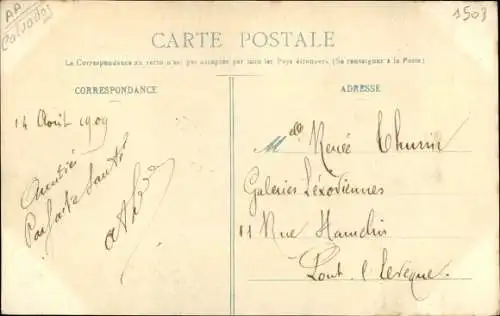 AP
Calvados
1503
CARTE POSTALE
La Correspondance au recto n'est pas acceptée par tous les Pays étrangers (Se renseigner à la Poste)
CORRESPONDANCE
ADRESSE
14 Août 1909
Amitié
Parfaite Santé
Melle Renée
Galeries Léxoviennes
11 Rue Hamelin
Pont l'evêque.